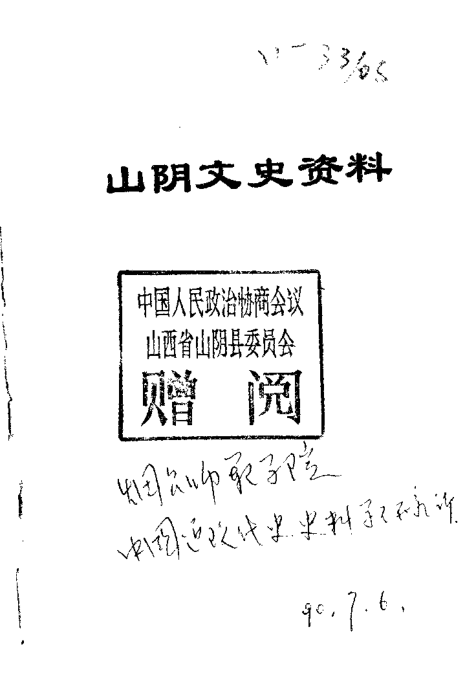 33/65
山阴文史资料
中国人民政治协商会议
山西省山阴县委员会
赠 阅
烟台师范学院
中国近现代史史料学
90.7.6.